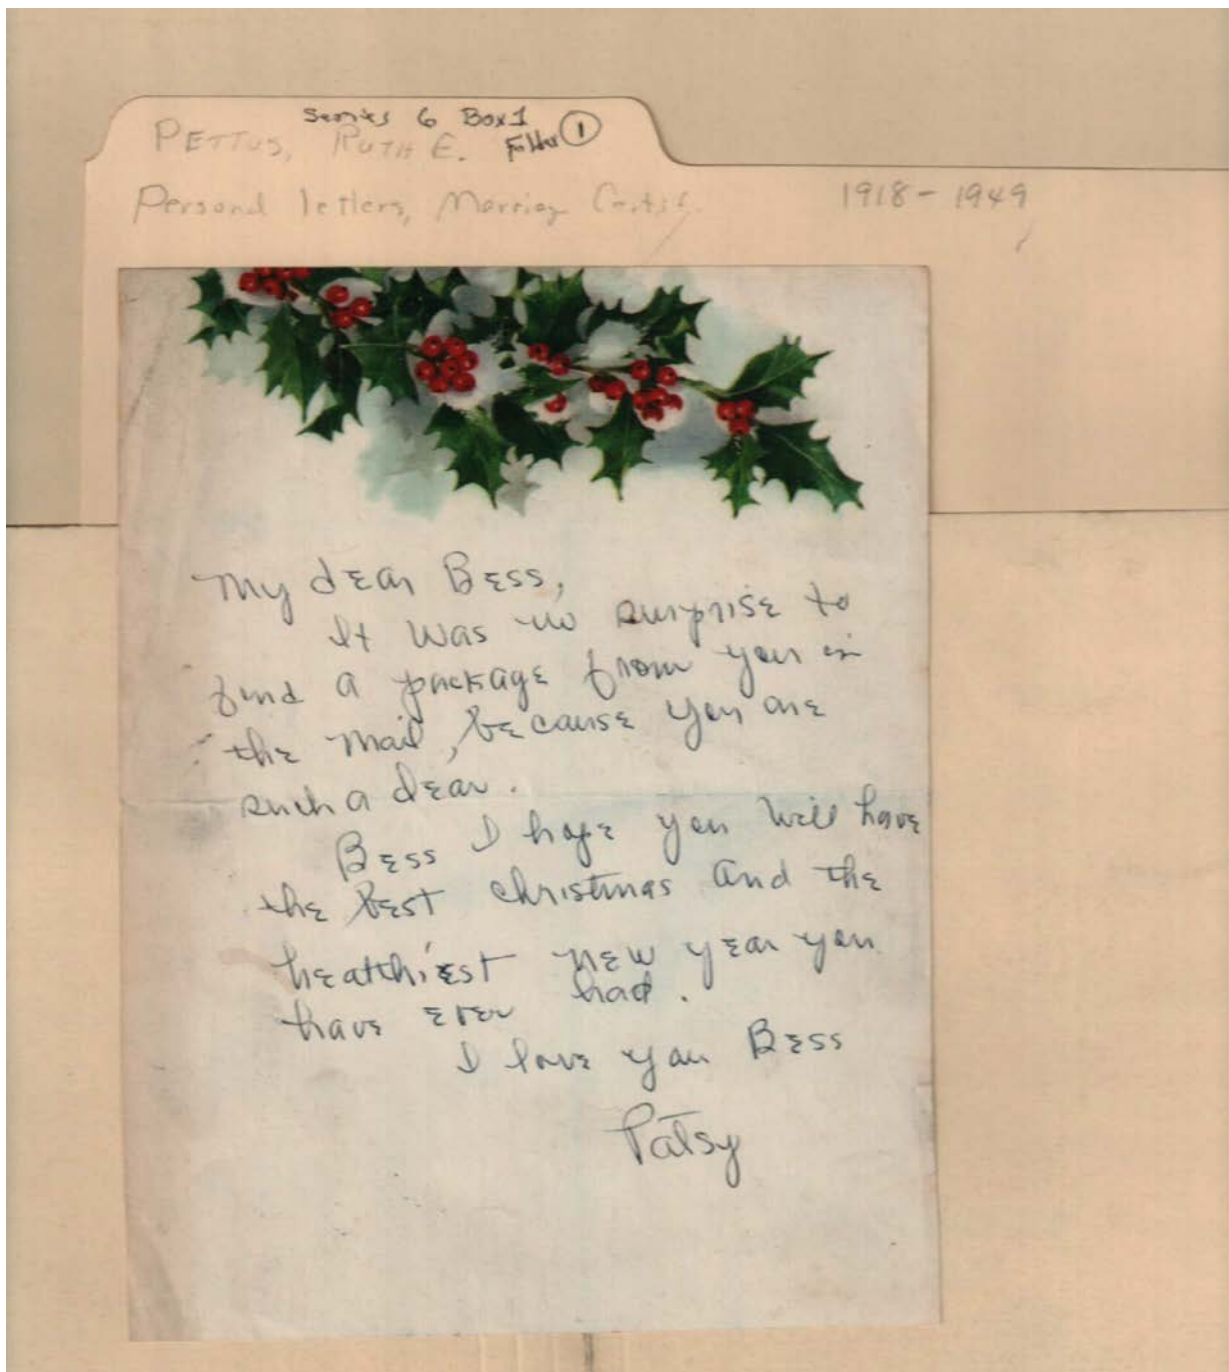 Series 6 Box 1
PETTUS, RUTH E. Folder 1
Personal letters, Marriag Certif.
1918-1949
My dear Bess,
It was no surprise to
find a package from you in
the mail, because you are
such a dear.
Bess I hope you will have
the best christmas and the
healthiest new year you
have ever had.
I love you Bess
Patsy